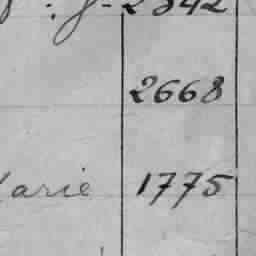 2842
2668
arie 1775